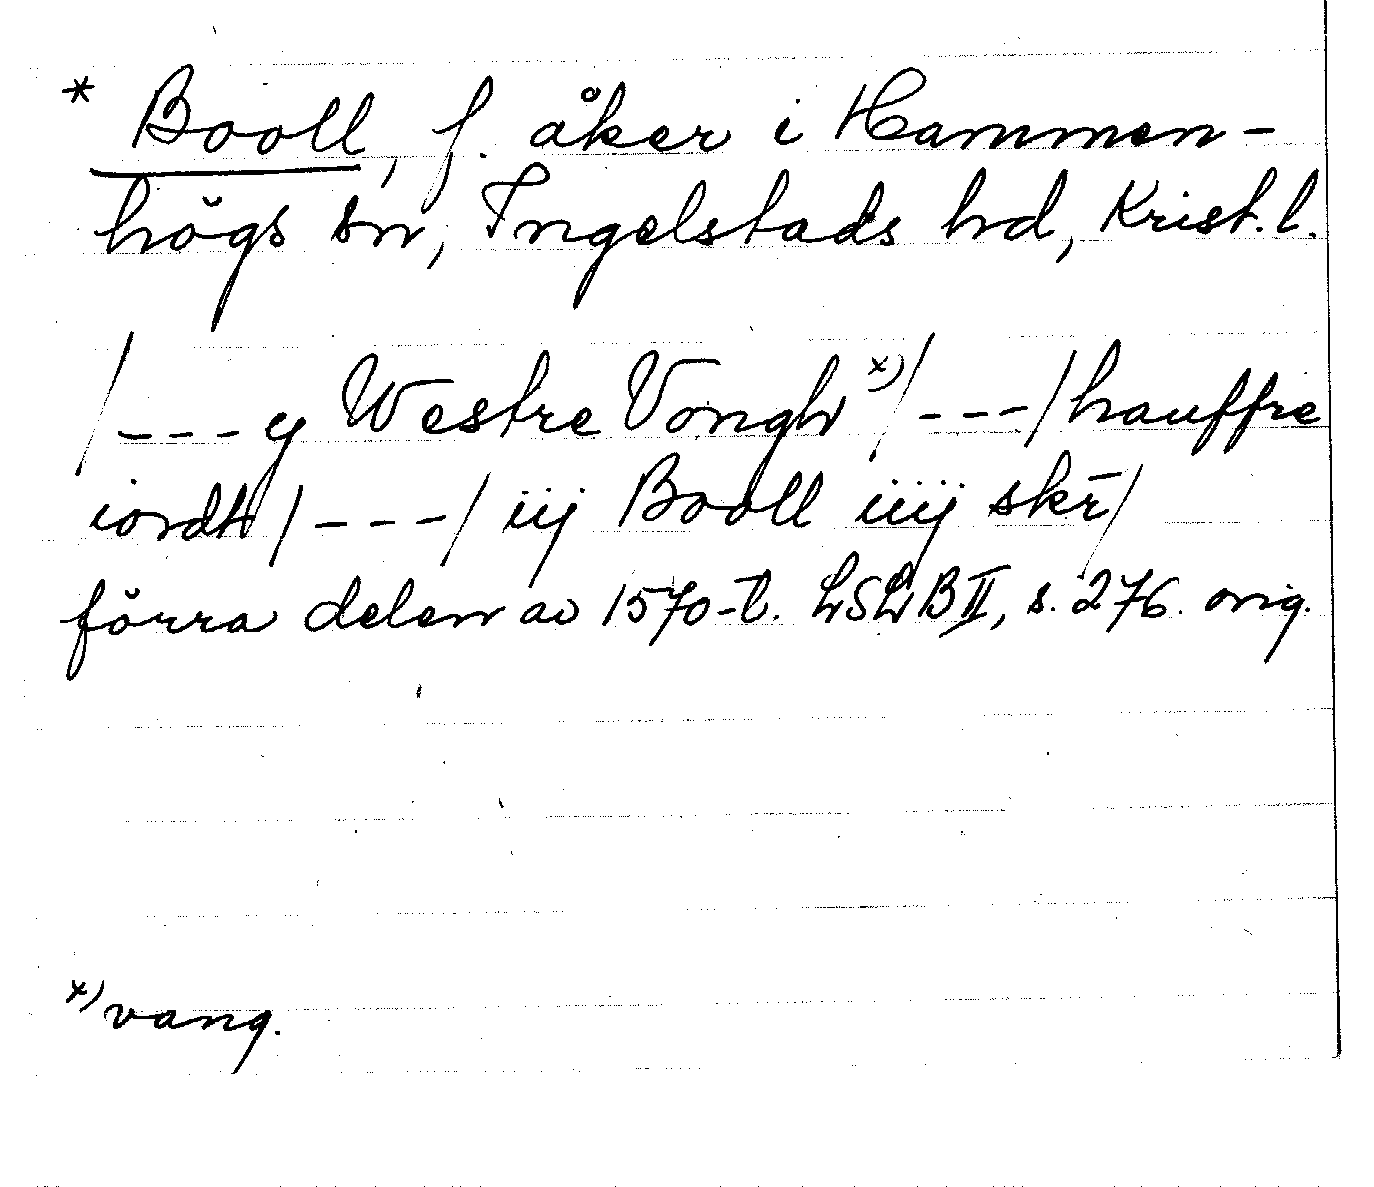 * Booll, f. åker i Hammen-
högs sn, Ingelstads hd, Krist. l.
/---y Westre Vongh x)/---/hauffre
iordt/---/ iij Booll iiij skr̄/
förra delen av 1570-t. LSLB II, s. 276. orig.
x) vang.